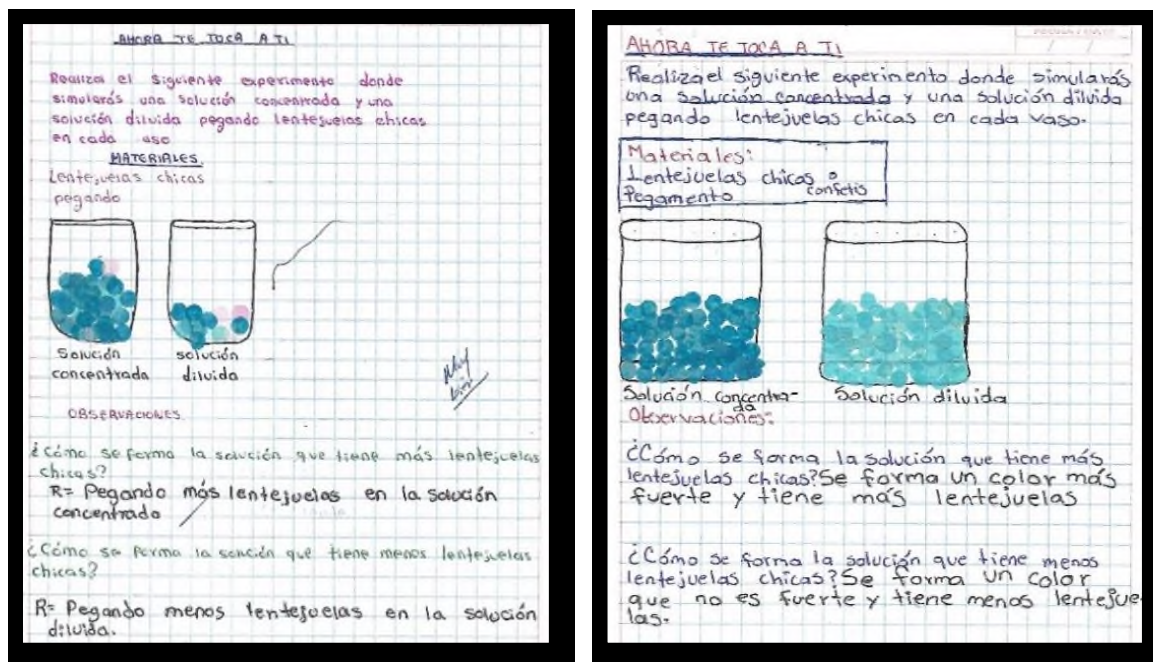 AHORA TE TOCA A TI
Realiza el siguiente experimento donde
simularás una solución concentrada y una
solución diluida pegando lentejuelas chicas
en cada uso
MATERIALES.
Lentejuelas chicas
pegando
Solución
concentrada
solución
diluida
OBSERVACIONES
¿Cómo se forma la solución que tiene más lentejuelas
chicas?
R= Pegando más lentejuelas en la solución
concentrado
¿Cómo se forma la que tiene menos lentejuelas
chicas?
R= Pegando menos lentejuelas en la solución
diluida.
AHORA TE TOCA A TI
Realiza el siguiente experimento donde simularás
una solución concentrada y una solución diluida
pegando lentejuelas chicas en cada vaso.
Materiales:
Lentejuelas chicas o
confetis
Pegamento
Solución concentra-
da
Solución diluida
Observaciones:
¿Cómo se forma la solución que tiene más
lentejuelas chicas? Se forma un color más
fuerte y tiene más lentejuelas
¿Cómo se forma la solución que tiene menos
lentejuelas chicas? Se forma un color
que no es fuerte y tiene menos lentejue-
las.